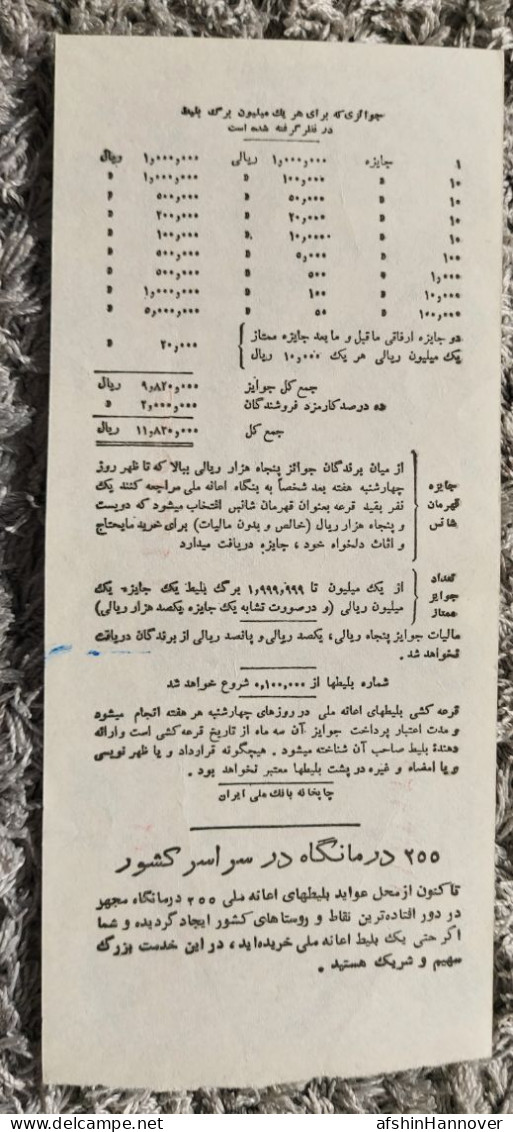 جوائزی که برای هر یک میلیون برگ بلیط
در نظر گرفته شده است
۱ جایزه ۱,۰۰۰,۰۰۰ ریالی ۱,۰۰۰,۰۰۰ ریال
۱۰ » ۱۰۰,۰۰۰ » ۱,۰۰۰,۰۰۰ »
۱۰ » ۵۰,۰۰۰ » ۵۰۰,۰۰۰ »
۱۰ » ۲۰,۰۰۰ » ۲۰۰,۰۰۰ »
۱۰ » ۱۰,۰۰۰ » ۱۰۰,۰۰۰ »
۱۰۰ » ۵,۰۰۰ » ۵۰۰,۰۰۰ »
۱,۰۰۰ » ۵۰۰ » ۵۰۰,۰۰۰ »
۱۰,۰۰۰ » ۱۰۰ » ۱,۰۰۰,۰۰۰ »
۱۰۰,۰۰۰ » ۵۰ » ۵,۰۰۰,۰۰۰ »
دو جایزه ارفاقی ماقبل و مابعد جایزه ممتاز
یک میلیون ریالی هر یک ۱۰,۰۰۰ ریال ۲۰,۰۰۰ »
جمع کل جوایز ۹,۸۲۰,۰۰۰ ریال
ده درصد کارمزد فروشندگان ۲,۰۰۰,۰۰۰ »
جمع کل ۱۱,۸۲۰,۰۰۰ ریال
جایزه قهرمان شانس
از میان برندگان جوائز پنجاه هزار ریالی ببالا که تا ظهر روز
چهارشنبه هفته بعد شخصاً به بنگاه اعانه ملی مراجعه کنند یک
نفر بقید قرعه بعنوان قهرمان شانس انتخاب میشود که دویست
و پنجاه هزار ریال (خالص و بدون مالیات) برای خرید مایحتاج
و اثاث دلخواه خود ، جایزه دریافت میدارد
تعداد جوایز ممتاز
از یک میلیون تا ۱,۹۹۹,۹۹۹ برگ بلیط یک جایزه یک
میلیون ریالی (و درصورت تشابه یک جایزه یکصد هزار ریالی)
مالیات جوایز پنجاه ریالی، یکصد ریالی و پانصد ریالی از برندگان دریافت
نخواهد شد .
شماره بلیطها از ۰,۱۰۰,۰۰۰ شروع خواهد شد
قرعه کشی بلیطهای اعانه ملی در روزهای چهارشنبه هر هفته انجام میشود
و مدت اعتبار پرداخت جوایز آن سه ماه از تاریخ قرعه کشی است و ارائه
دهندهٔ بلیط صاحب آن شناخته میشود . هیچگونه قرارداد و یا ظهر نویسی
و یا امضاء و غیره در پشت بلیطها معتبر نخواهد بود .
چاپخانه بانک ملی ایران
۲۵۵ درمانگاه در سراسر کشور
تا کنون از محل عواید بلیطهای اعانه ملی ۲۵۵ درمانگاه مجهز
در دور افتاده‌ترین نقاط و روستاهای کشور ایجاد گردیده و شما
اگر حتی یک بلیط اعانه ملی خریده‌اید، در این خدمت بزرگ
سهیم و شریک هستید .
www.delcampe.net
afshinHannover